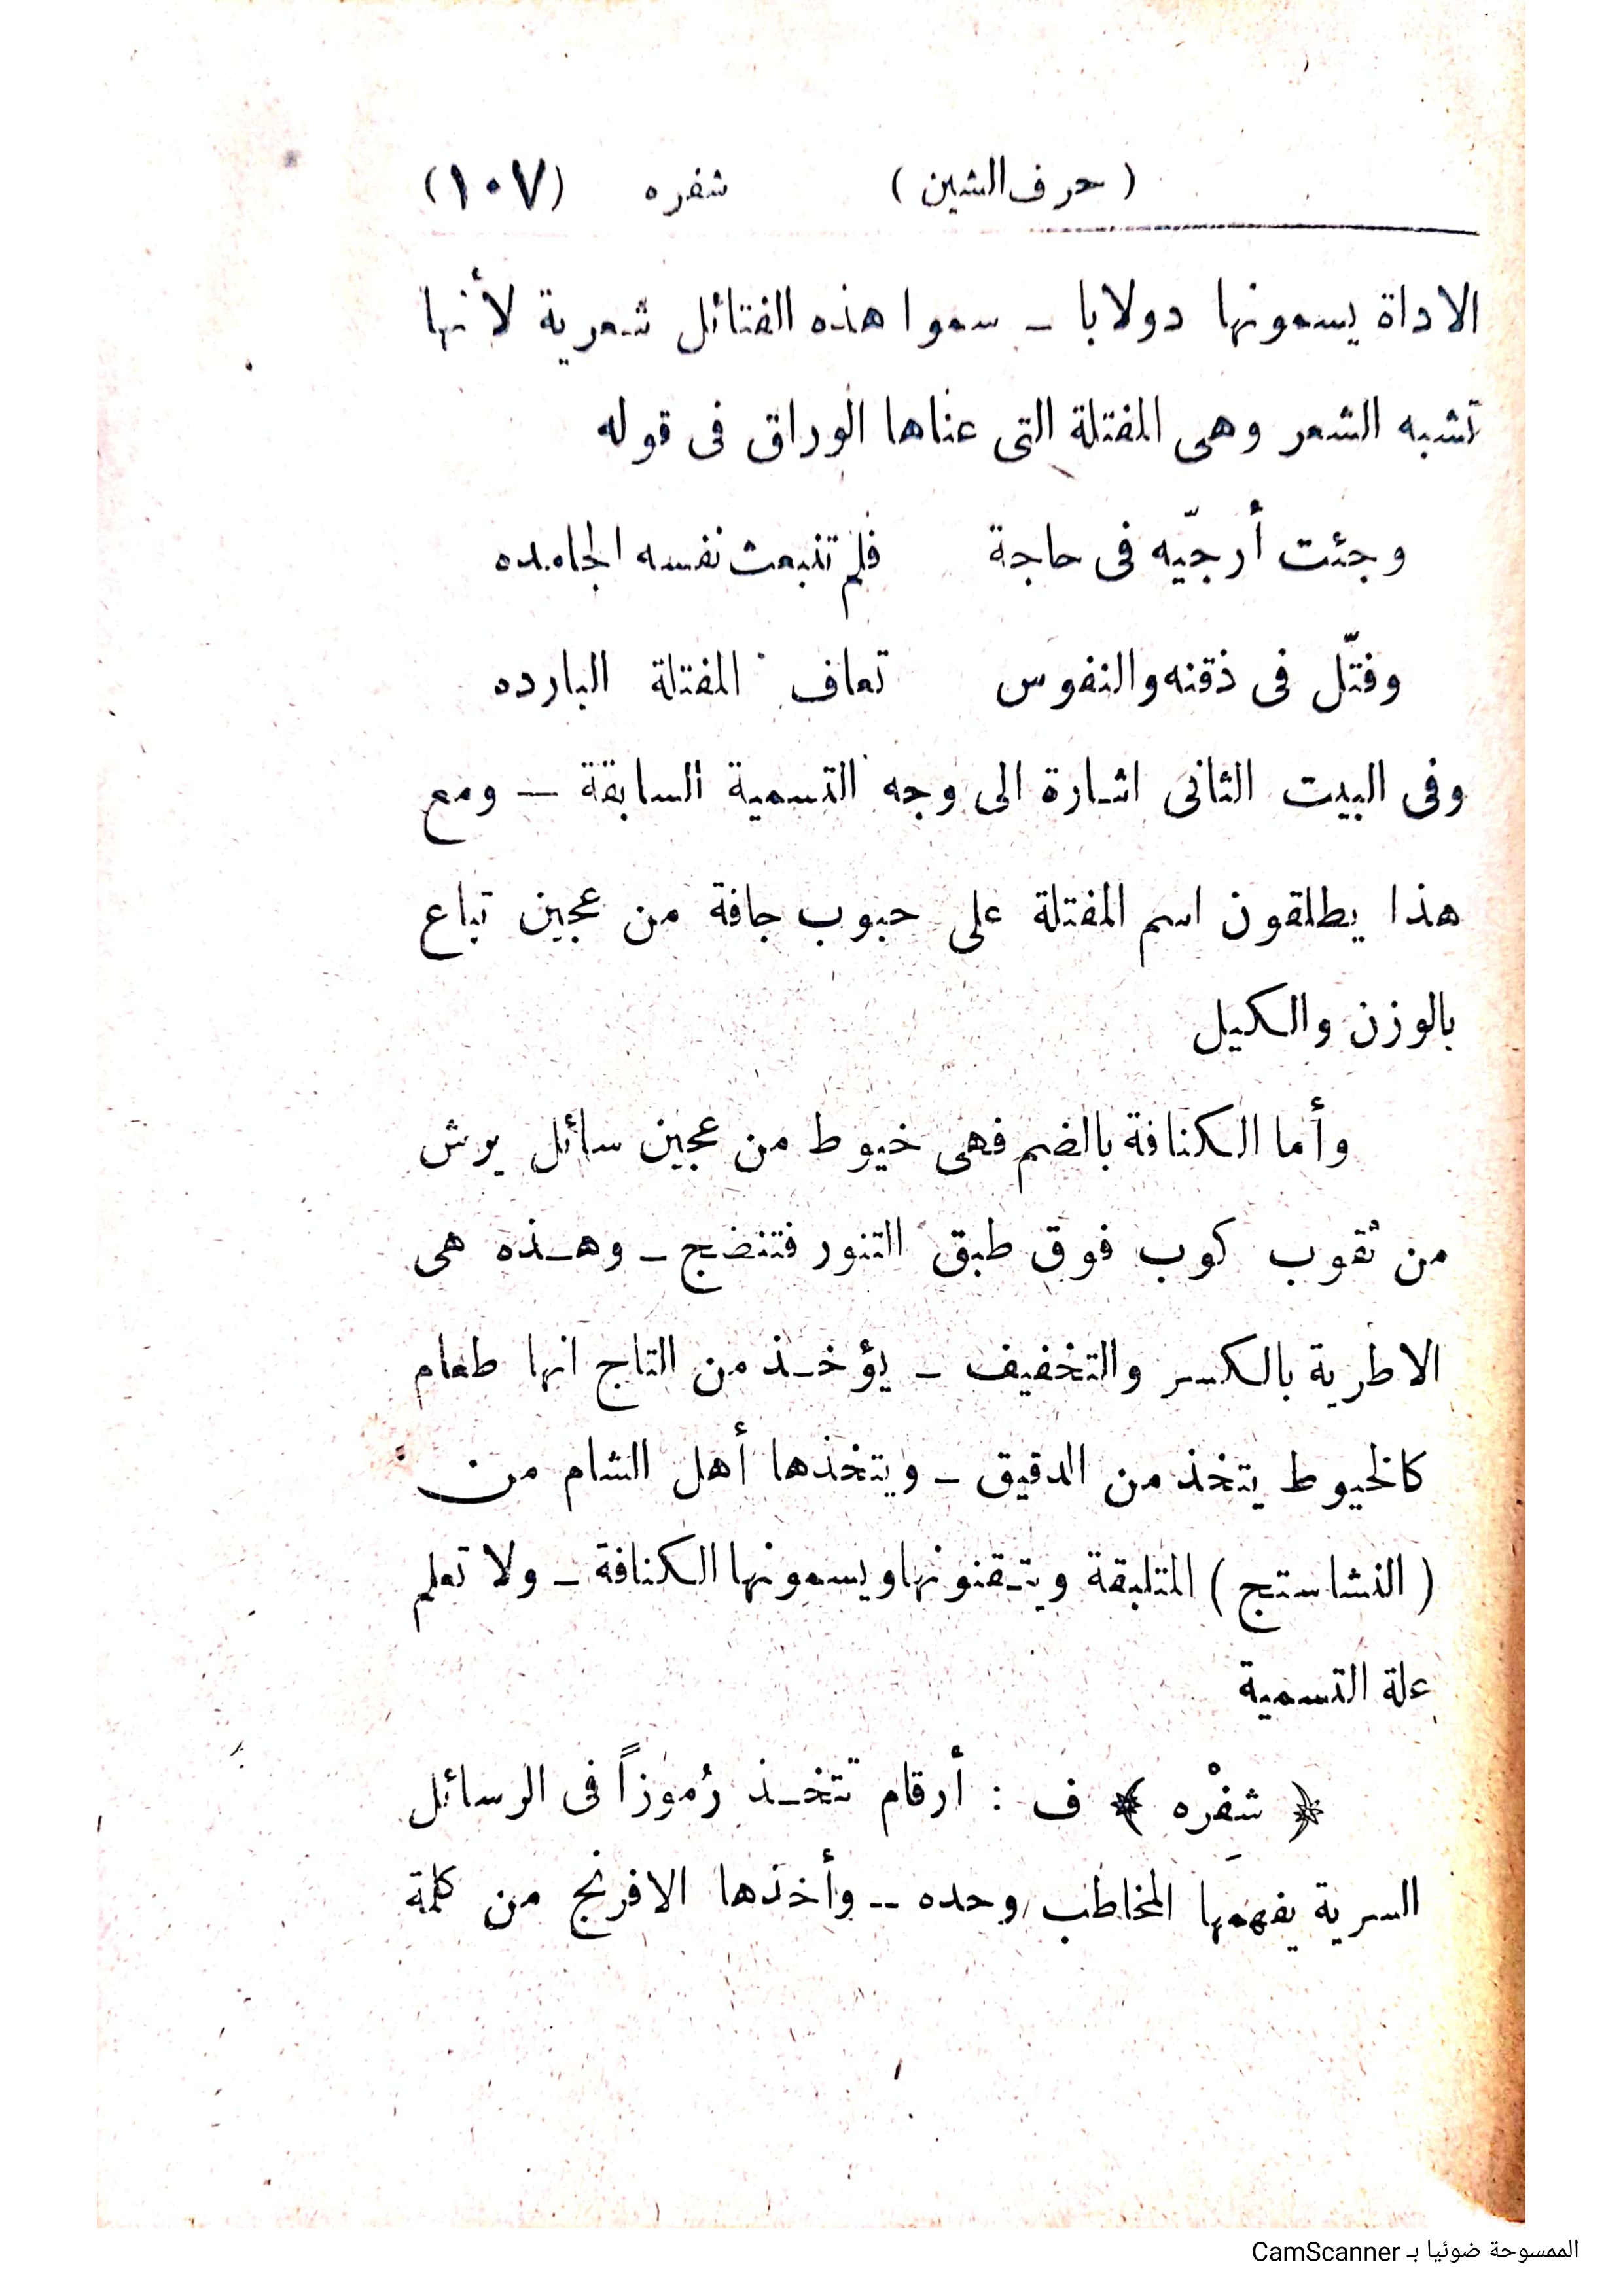 ( حرف الشين ) شفره (١٠٧)
الاداة يسمونها دولابا ـ سموا هذه الفتائل شعرية لأنها
تشبه الشعر وهى المفتلة التى عناها الوراق فى قوله
وجئت أرجّيه فى حاجة فلم تنبعث نفسه الجامده
وفتّل فى ذقنه والنفوس تعاف المفتلة البارده
وفى البيت الثانى اشارة الى وجه التسمية السابقة — ومع
هذا يطلقون اسم المفتلة على حبوب جافة من عجين تباع
بالوزن والكيل
وأما الكنافة بالضم فهى خيوط من عجين سائل يرش
من ثقوب كوب فوق طبق التنور فتنضج ـ وهـذه هى
الاطرية بالكسر والتخفيف ـ يؤخـذ من التاج انها طعام
كالخيوط يتخذ من الدقيق ـ ويتخذها أهل الشام من
( النشاستج ) المتلبقة ويتـقنونها ويسمونها الكنافة ـ ولا تعلم
علة التسمية
﴿ شفْره ﴾ ف : أرقام تتخـذ رُموزاً فى الرسائل
السرية يفهمها المخاطَب وحده -- وأخذها الافرنج من كلمة
الممسوحة ضوئيا بـ CamScanner